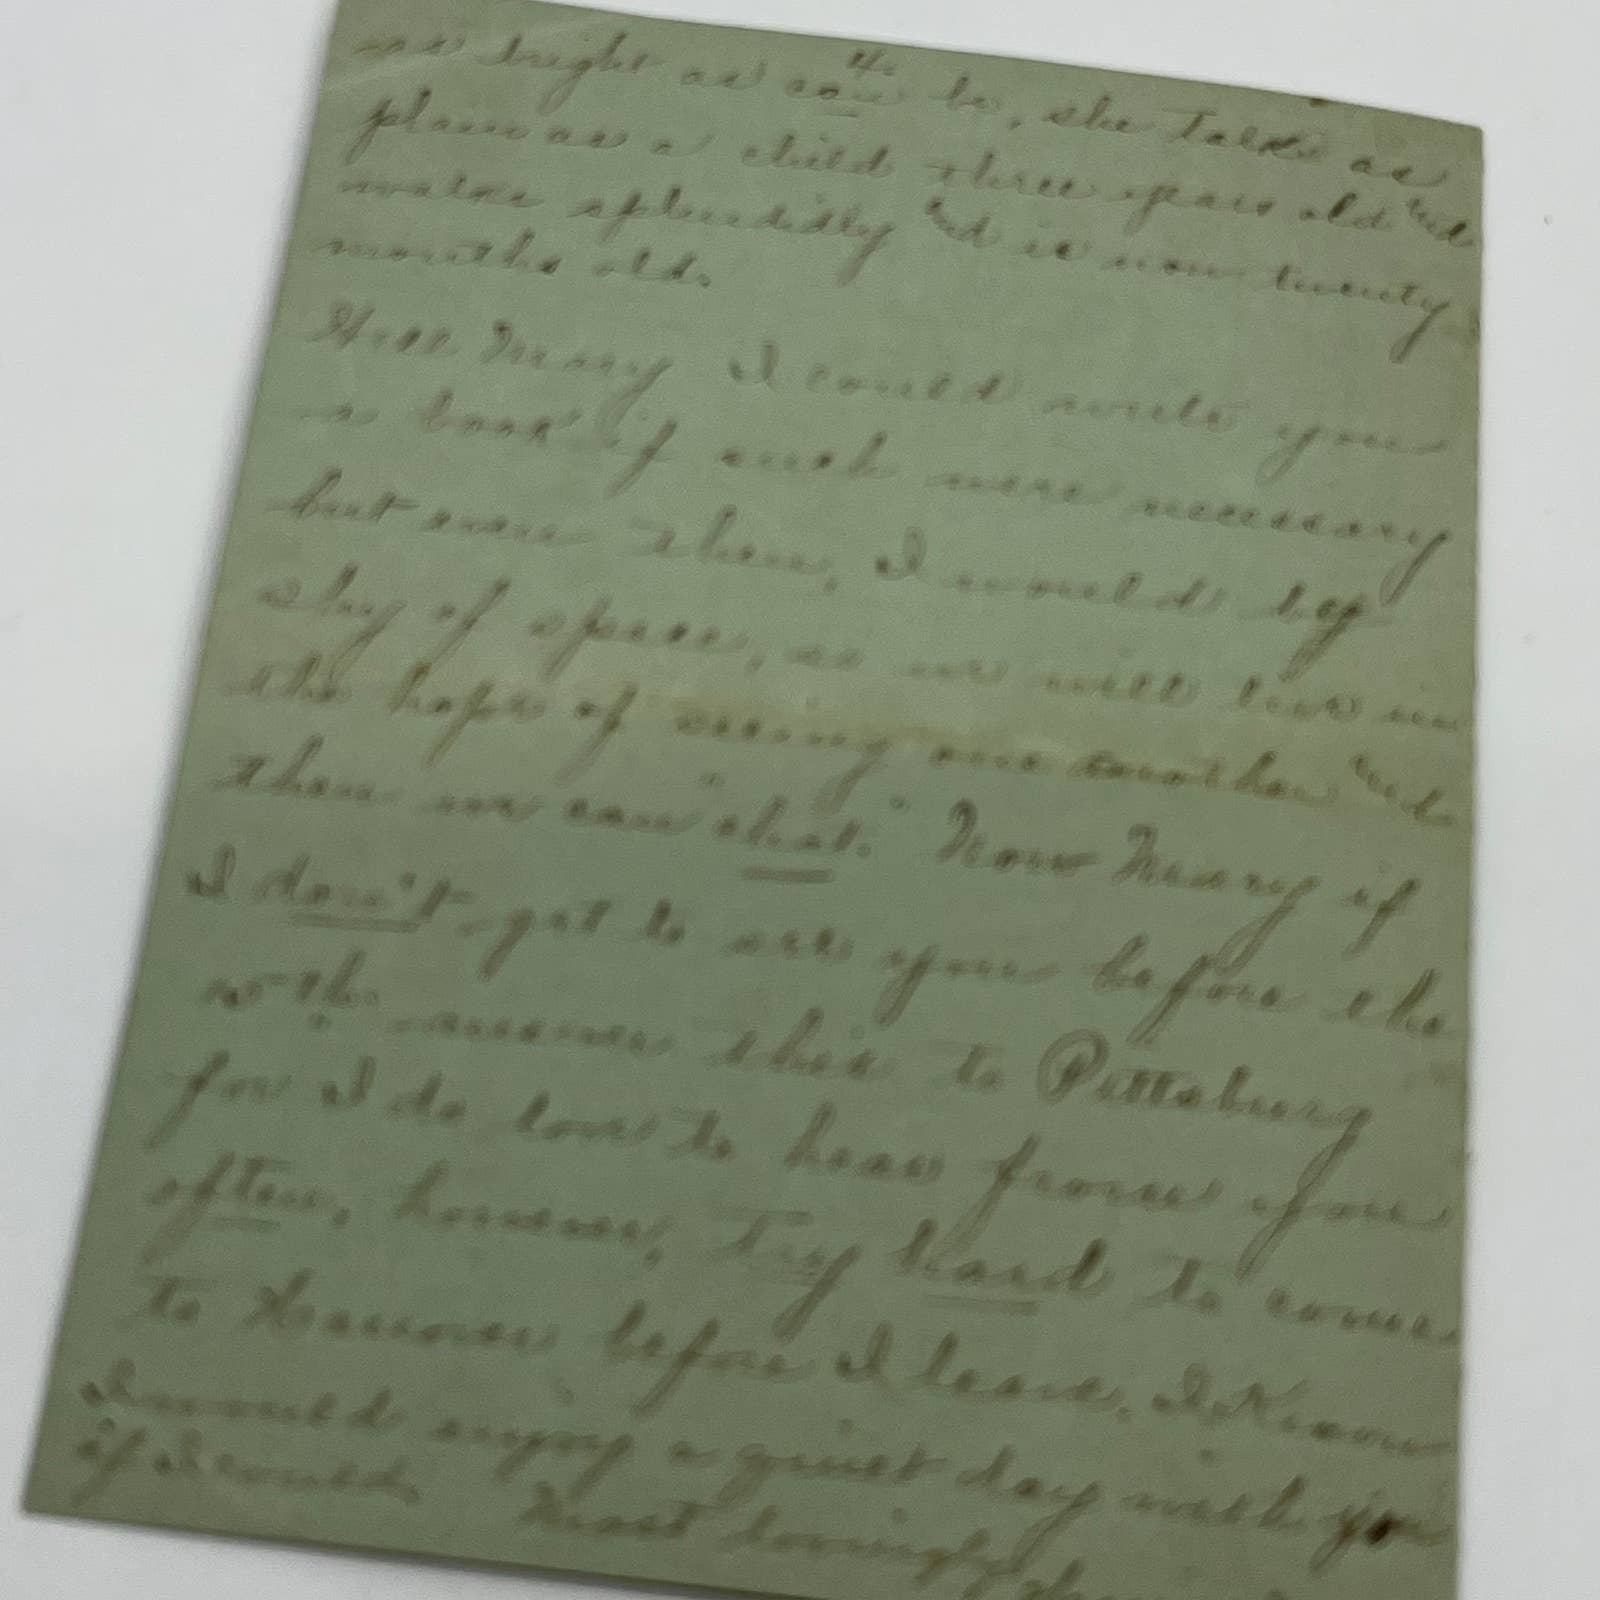 4.
as bright as can be, she talks as
plain as a child three years old and
walks splendidly and is now twenty
months old.
Well Mary I could write you
a book if such were necessary
but even then, I would be
shy of space, as we will live in
the hope of seeing one another and
then we can "chat." Now Mary if
I don't get to see you before the
9th. answer this to Pittsburg
for I do love to hear from you
often, however, try hard to come
to Hanover before I leave, I Know
I would enjoy a quiet day with you
if I could.
Most lovingly